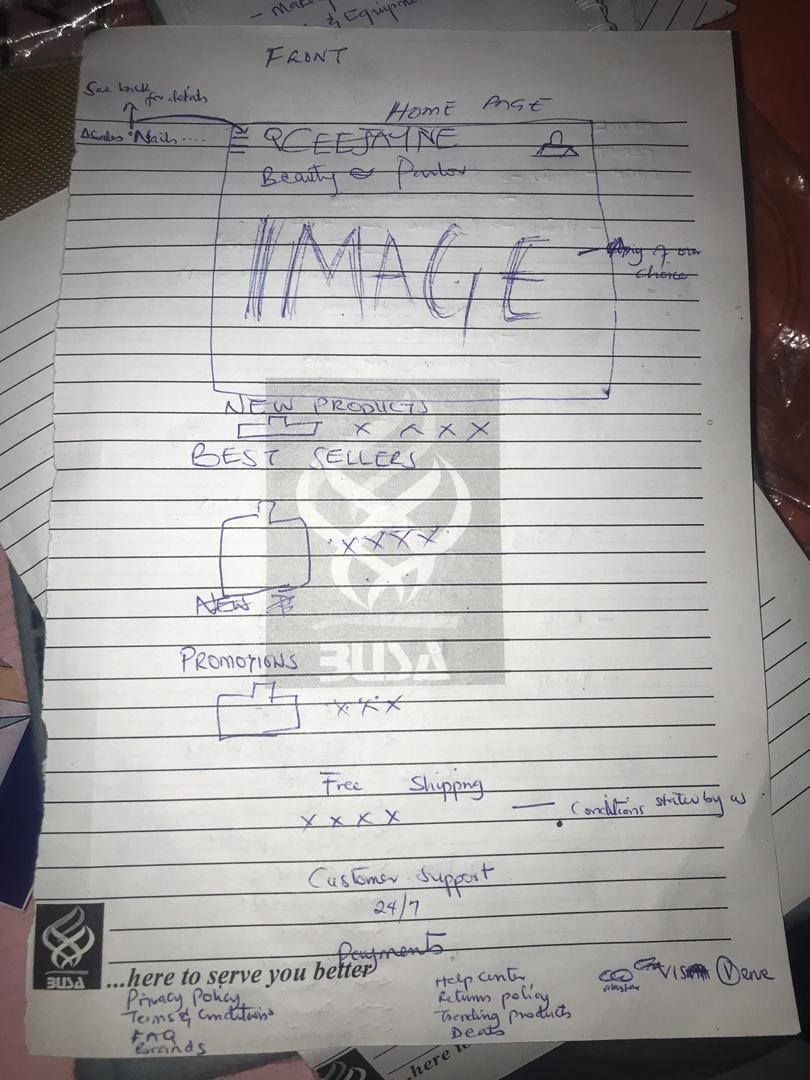 - Makeu
& Equipme
FRONT
See back for details
HOME PAGE
Nails ....
QCEEJAYNE
Beauty Parlor
IMAGE
of our
choice
NEW PRODUCTS
X X X X
BEST SELLERS
X X X X
NEW
BUSA
PROMOTIONS
X X X
Free Shippng
X X X X
Conditions stated by us
Customer Support
24/7
Payments
BUSA
...here to serve you better
Privacy Policy
Terms & Conditions
FAQ
Brands
Help Center
Returns policy
Trending products
Deals
master
VISA
Verve
..here